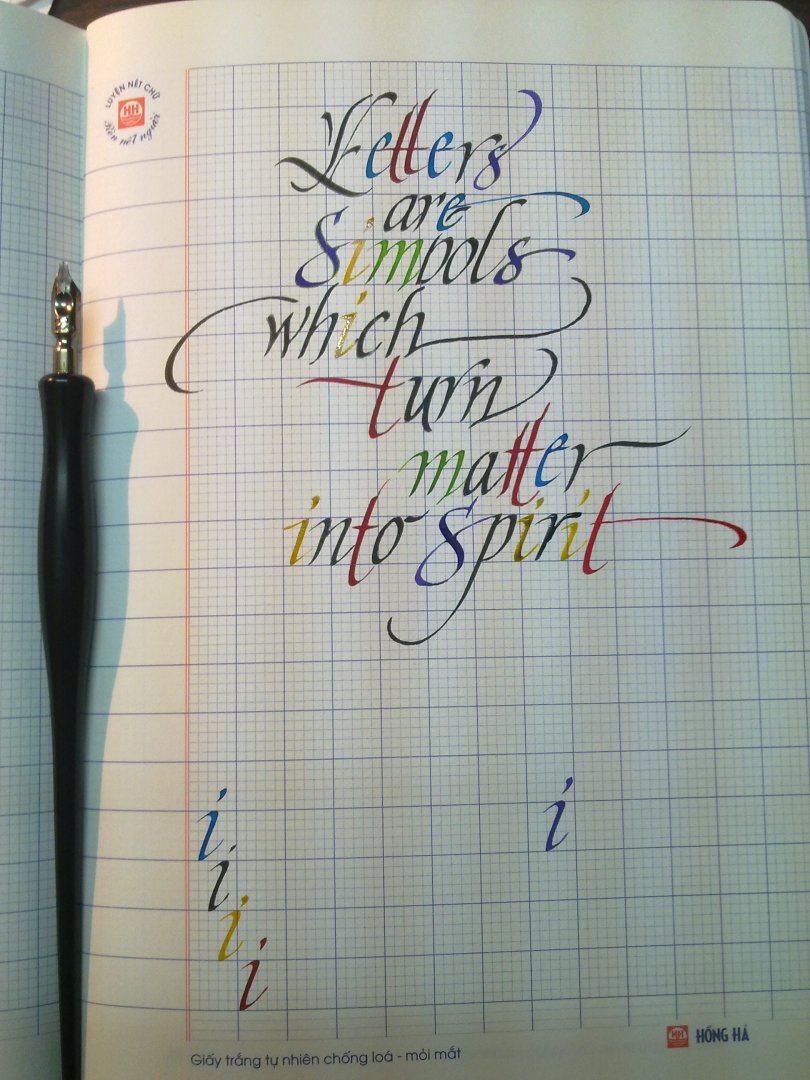 LUYỆN NÉT CHỮ
HH
Rèn nết người
Letters
are
Simbols
which
turn
matter
into Spirit
i
i
i
i
i
HH HỒNG HÀ
Giấy trắng tự nhiên chống loá - mỏi mắt